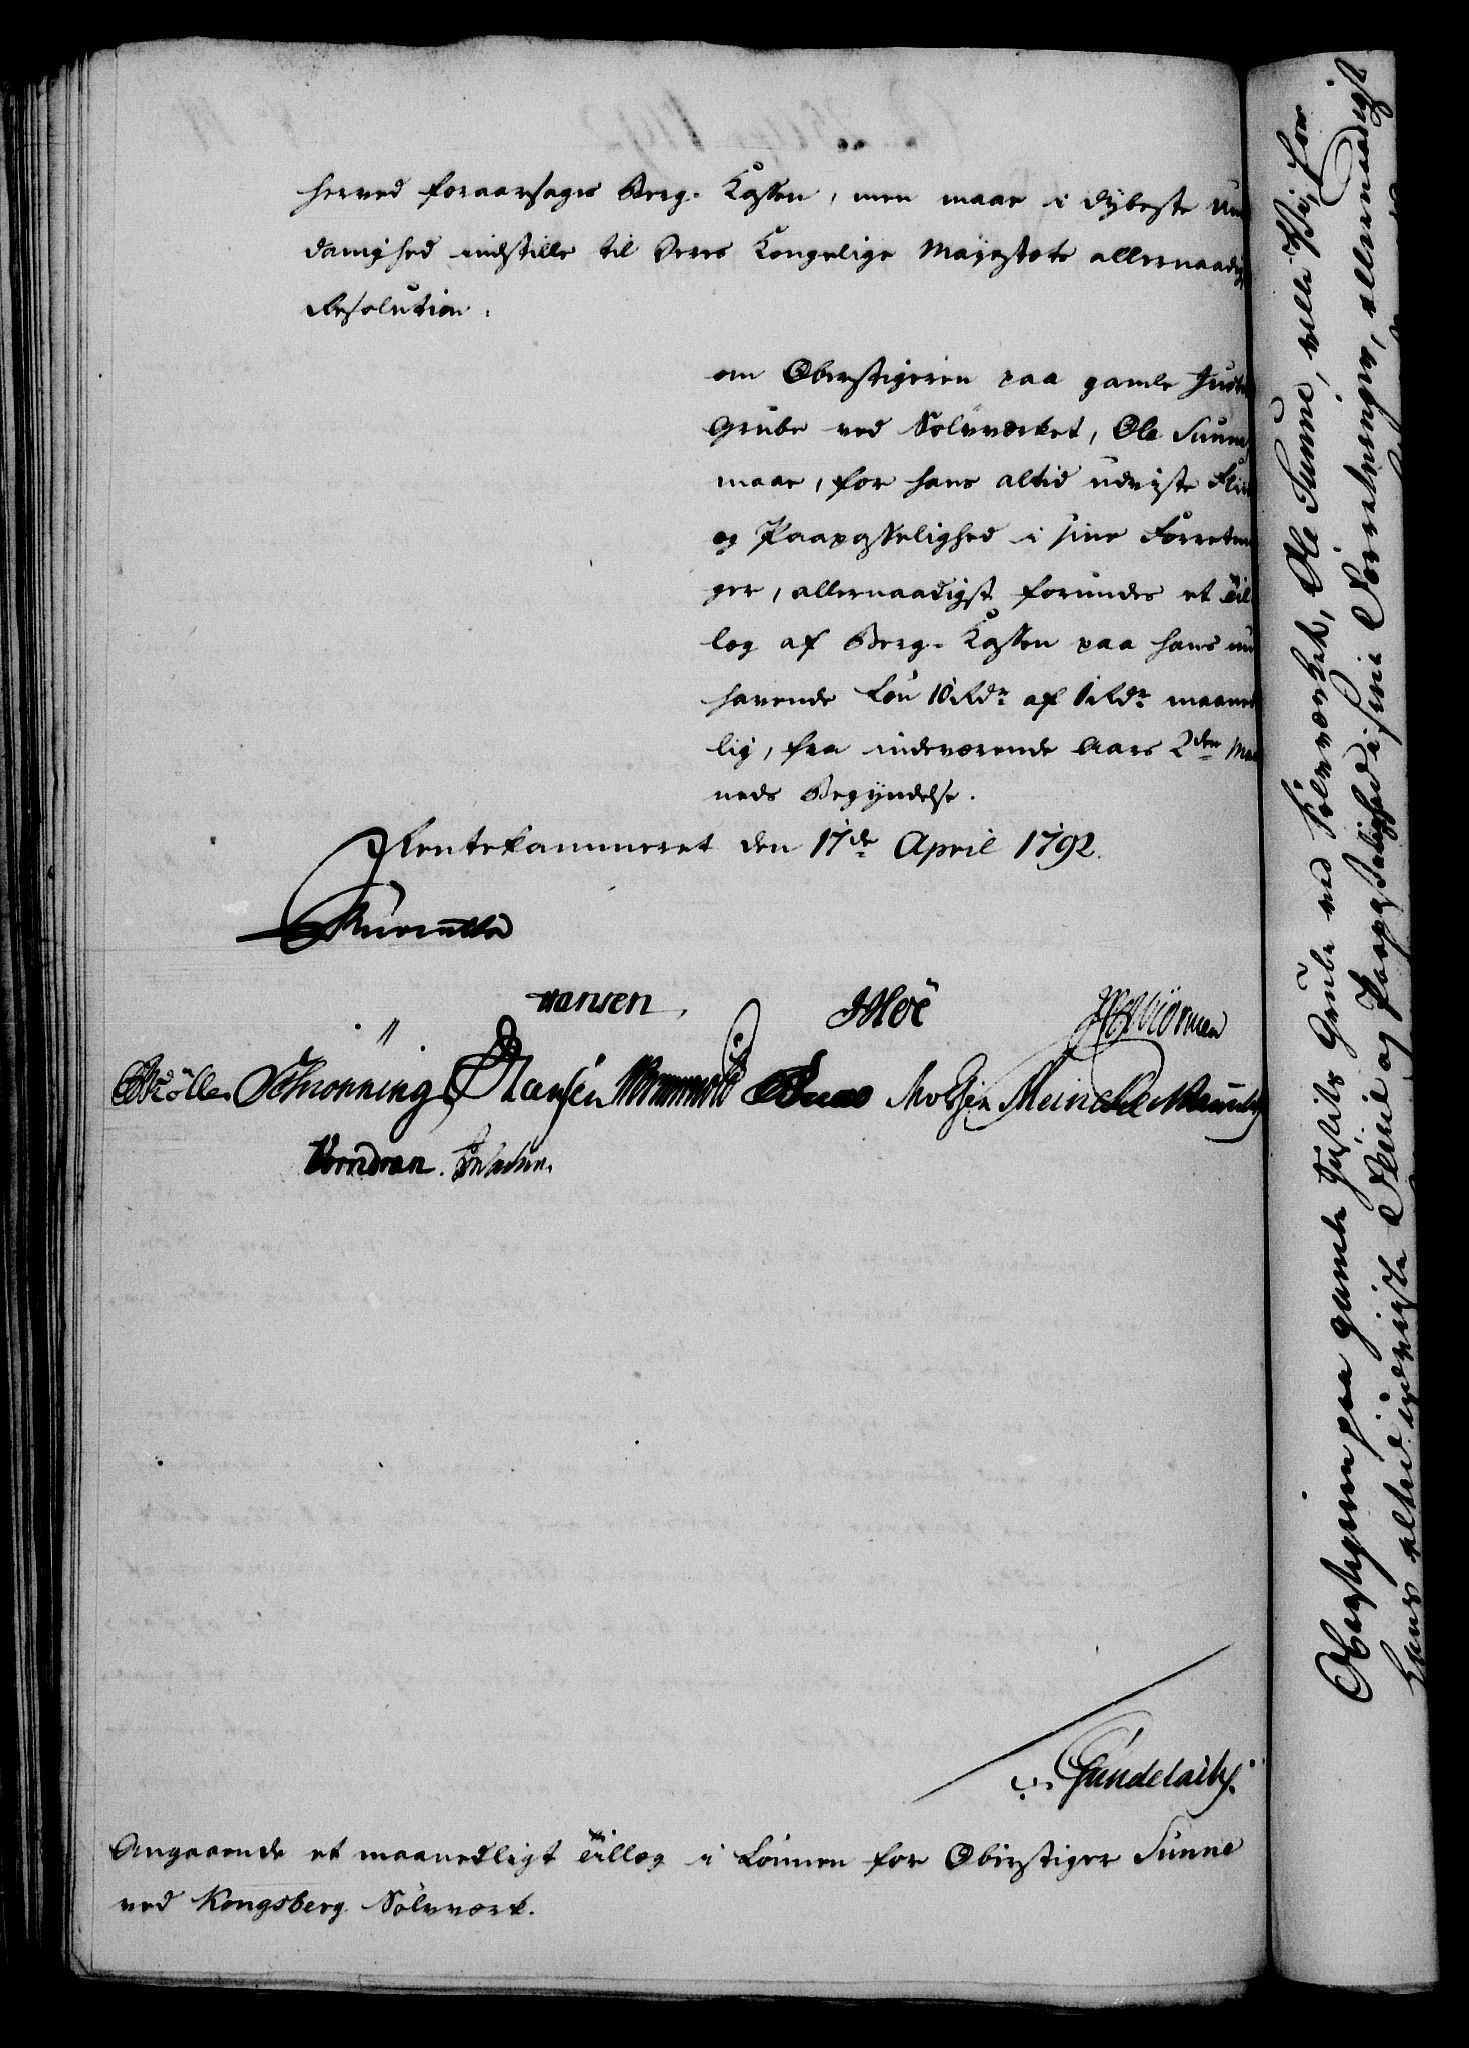 herved foraarsages Berg-Kassen, men maae i dybeste Un
danighed indstille til Deres Kongelige Majestæts allernaadig
Resolution:
om Oberstigeren paa gamle Justi
Grube ved Sølvværket, Ole Sunne,
maae, for hans altid udviste Flii
og Paapasselighed i sine Forretni
ger, allernaadigst forundes et Til
læg af Berg-Kassen paa hans nu
havende Løn 10 Rdr af 1 Rdr maaned
lig, fra indeværende Aars 2den Maa
neds Begyndelse.
Rentekammeret den 17de April 1792.
Hansen
JMoe
Schrønning Hansen Wormvold Meincke
Vorndran
Gundelach.
Angaaende et maanedligt Tillæg i Lønnen for Oberstiger Sunne
ved Kongsberg Sølvværk.
Oberstigeren paa gamle Justits Grube ved Sølvværket, Ole Sunne, ville Vi, for
hans altid udviste Fliid og Paapasselighed i sine Forretninger, allernaadigst